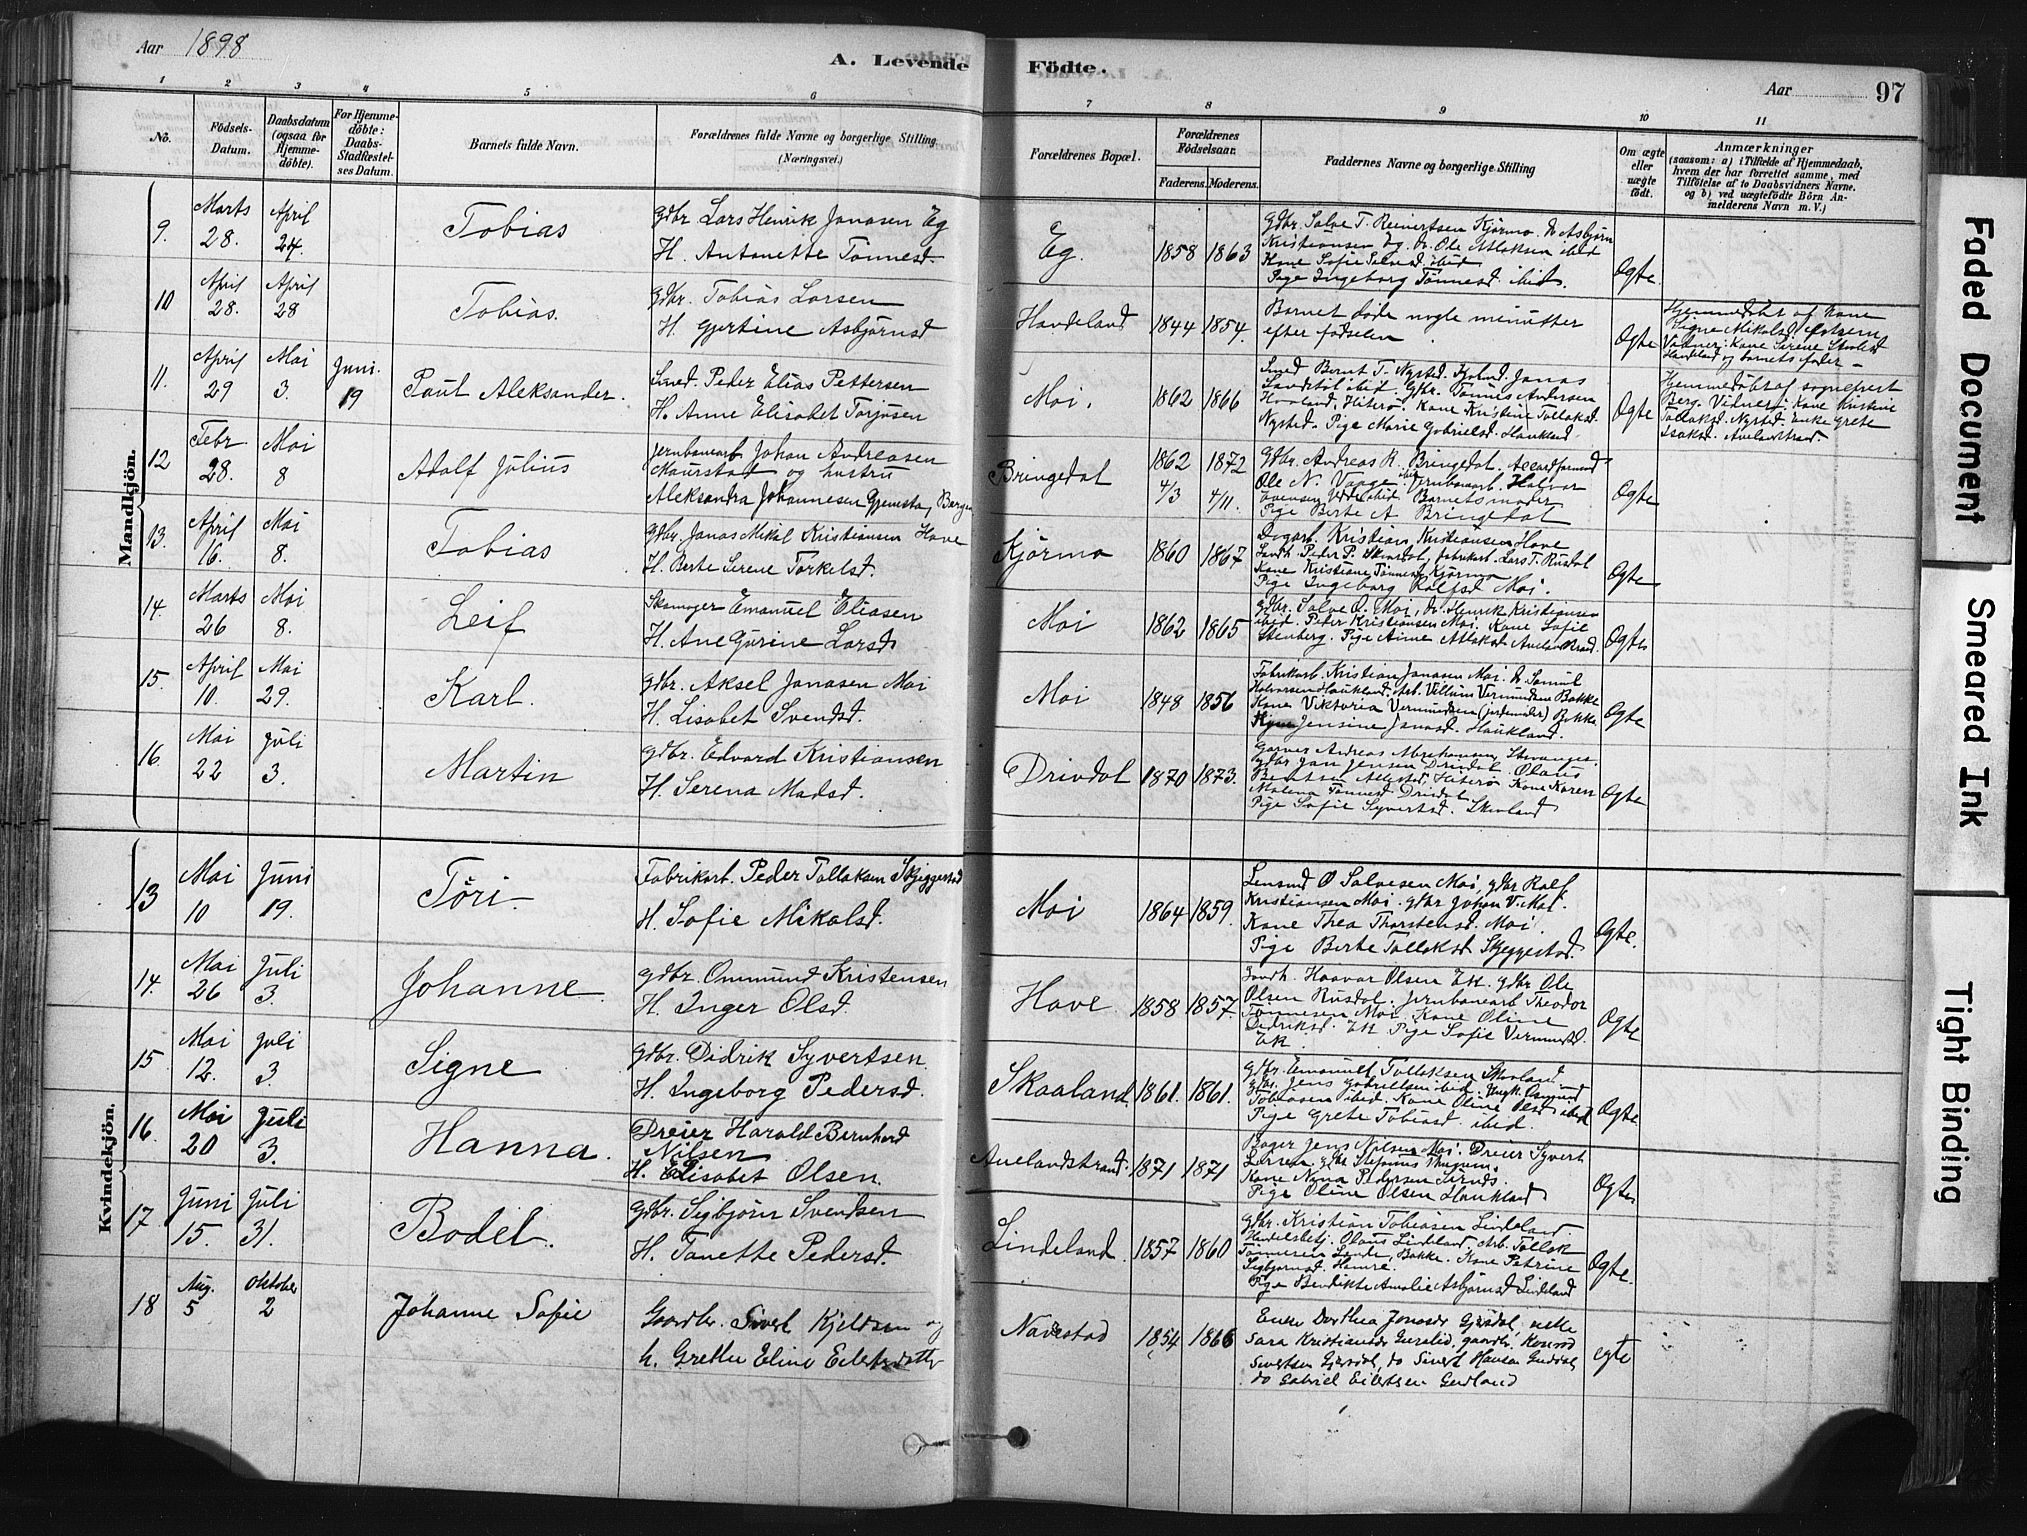 Aar 1898
A. Levende
Födte.
Aar
97
1 2 3 4 5 6 7 8 9 10 11
No.
Födsels-
Datum.
Daabsdatum
(ogsaa for
Hjemme-
döbte).
For Hjemme-
döbte:
Daabs-
Stadfæstel-
ses Datum.
Barnets fulde Navn.
Forældrenes fulde Navne og borgerlige Stilling
(Næringsvei.)
Forældrenes Bopæl.
Forældrenes
Födselsaar.
Faderens. Moderens.
Faddernes Navne og borgerlige Stilling
Om ægte
eller
uægte
födt.
Anmærkninger
(saasom: a) i Tilfælde af Hjemmedaab,
hvem der har forrettet samme, med
Tilföielse af to Daabsvidners Navne.
og b) ved uægtefödte Börn An-
melderens Navn m. V.)
Mandkjön.
9. Marts 28. April 24. Tobias
Gdbr. Lars Henrik Jonasen Eg
H. Antonette Tönnesd.
Eg. 1858 1863
Gdbr. Salve T. Reinertsen Kjörmo. Do Asbjörn
Kristiansen Eg. Do. Ole Atlaksen ibid
Kone Sofie Salvesd. ibid
Pige Ingeborg Tönnesd. ibid.
Ægte
10 April 28. April 28 Tobias.
Gdbr. Tobias Larsen
H. Gjertine Asbjörnsd
Haudeland 1844 1854.
Barnet döde nogle minutter
efter födselen
Ægte
Hjemmedöbt af kone
Signe Mikalsd.
Vidner: Kone Sirene
og barnets fader
11. April 29 Mai 3. Juni 19 Paul Aleksander.
Smed. Peder Elias Pettersen
H. Anne Elisabet Torjusen
Moi. 1862 1866
Smed Bernt T. Nysted. Jonas
ibid. Gdbr. Tönnes Andersen
Haaland, Hiterö. Kone Kristine Tollaksd.
Nysted. Pige Marie Gabrielsd. Haukland.
Ægte
Hjemmedöbt af sogneprest
Berg. Vidner: Kone Kristine
Tollaksd. Nysted. Enke Grete
Isaksd. Auelandstrand.
12 Febr 28. Mai 8 Adolf Julius
Jernbanearb Johan Andreasen
Maurstad og hustru
Aleksandra Johannesen Gjemstø, Bergen
Bringedal 1862 4/3 1872 4/11.
Gdbr. Andreas R. Bringedal. Accordformand
Ole N. Vaage ibid Jernbanearb. Halvor
Evensen ibid. Barnets moder
Pige Berte A. Bringedal
Ægte
13. April 16. Mai 8. Tobias
Gdbr. Jonas Mikal Kristiansen Hove
H. Berte Serene Torkelsd.
Kjörmo 1860 1867
Dagarb. Kristian Kristiansen Hove
Landh. Peder P. fabrikarb. Lars T. Rusdal
Kone Kristiane Tönnesd. Kjörmo
Pige Ingeborg Rolfsd Moi.
Ægte
14. Marts 26 Mai 8. Leif
Skomager Emanuel Eliasen
H. Ane Gurine Larsd
Moi 1862 1865
Gdbr. Salve O. Moi, do. Henrik Kristiansen
ibid. Peder Kristiansen Moi. Kone Sofie
Stenberg. Pige Anne Atlaksd Auelandstrand.
Ægte
15. April 10. Mai 29. Karl.
Gdbr. Aksel Jonasen Moi
H. Lisabet Svendsd.
Moi 1848 1856
Fabrikarb. Kristian Jonasen Moi. Do Samuel
Halvorsen Haukland. Arb. Villum Vermundsen Bakke
Kone Viktoria Vermundsen (jordemoder) Bakke
Jensine Jonasd. Haukland.
Ægte
16. Mai 22 Juli 3. Martin
Gdbr. Edvard Kristiansen
H. Serena Madsd.
Drivdal 1870 1873.
Garver Andreas Abrahamsen, Stavanger.
Gdbr Jan Jensen Drivdal. Olaus
Berntsen Hiterö. Kone Karen
Malena Tönnesd Drivdal
Pige Sofie Syvertsd. Skaaland
Ægte
Kvindekjön.
13 Mai 10 Juni 19. Töri.
Fabrikarb. Peder Tollaksen Skjeggestad
H. Sofie Mikalsd.
Moi 1864 1859.
Lensmd O Salvesen Moi, gdbr Rolf
Kristiansen Moi. gdbr Johan V. Moi.
Kone Thea Thorstensd. Moi.
Pige Berte Tollaksd Skjeggestad.
Ægte.
14. Mai 26 Juli 3. Johanne.
Gdbr. Ommund Kristensen
H. Inger Olsd.
Hove 1858 1857.
Landh. Haavar Olsen Eik. gdbr Ole
Olsen Rusdal. Jernbanearb Theodor
Tönnesen Moi. Kone Oline
Didriksd. Eik Pige Sofie Vermundsd.
Eik.
Ægte
15 Mai 12. Juli 3. Signe
Gdbr. Didrik Syvertsen
H. Ingeborg Pedersd.
Skaaland. 1861. 1861.
Gdbr. Emanuel Tollaksen Skaaland
gdbr. Jens Gabrielsen ibid. Ungk. Osmund
Tobiasen ibid. Kone Oline Olsd ibid
Pige Grete Tobiasd. ibid.
Ægte
16. Mai 20 Juli 3. Hanna.
Dreier Harald Bernhard
Nilsen
H. Elisabet Olsen.
Auelandstrand. 1871 1871
Bager Jens Nilsen Moi. Dreier Syvert
Larsen, gdbr Stefanus
Kone Nana Pedersen
Pige Oline Olsen Haukland
Ægte
17 Juni 15. Juli 31. Bodel.
Gdbr. Sigbjörn Svendsen
H. Tanette Pedersd.
Lindeland. 1857 1860
Gdbr. Kristian Tobiasen Lindeland.
Handelsbetj. Olaus Lindeland. Arb. Tollak
Tönnesen Lande, Bakke. Kone Petrine
Sigbjörnsd. Hamre.
Pige Bendikte Amalie Asbjörnsd Lindeland
Ægte.
18 Aug. 5 Oktober 2 Johanne Sofie
Gaardbr. Sivert Kjeldsen og
h. Grethe Eline Eilertsdatter
Navestad 1854 1866
Enke Dorthea Jonasdr Gjersdal, enke
Sara Kristiansdr gaardbr. Konrad
Sivertsen Gjersdal, do Sivert Hansen
do Gabriel Eilertsen
egte
Faded Document
Smeared Ink
Tight Binding